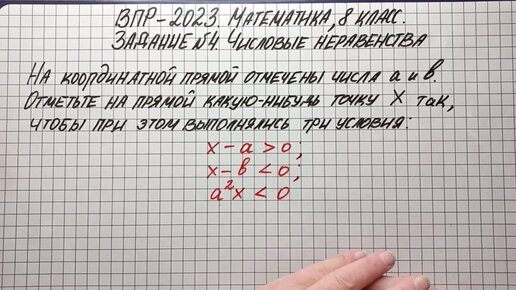 ВПР-2023. МАТЕМАТИКА, 8 КЛАСС.
ЗАДАНИЕ №4. ЧИСЛОВЫЕ НЕРАВЕНСТВА
НА КООРДИНАТНОЙ ПРЯМОЙ ОТМЕЧЕНЫ ЧИСЛА a и в.
ОТМЕТЬТЕ НА ПРЯМОЙ КАКУЮ-НИБУДЬ ТОЧКУ X ТАК,
ЧТОБЫ ПРИ ЭТОМ ВЫПОЛНЯЛИСЬ ТРИ УСЛОВИЯ:
x - a > 0;
x - в < 0;
a²x < 0